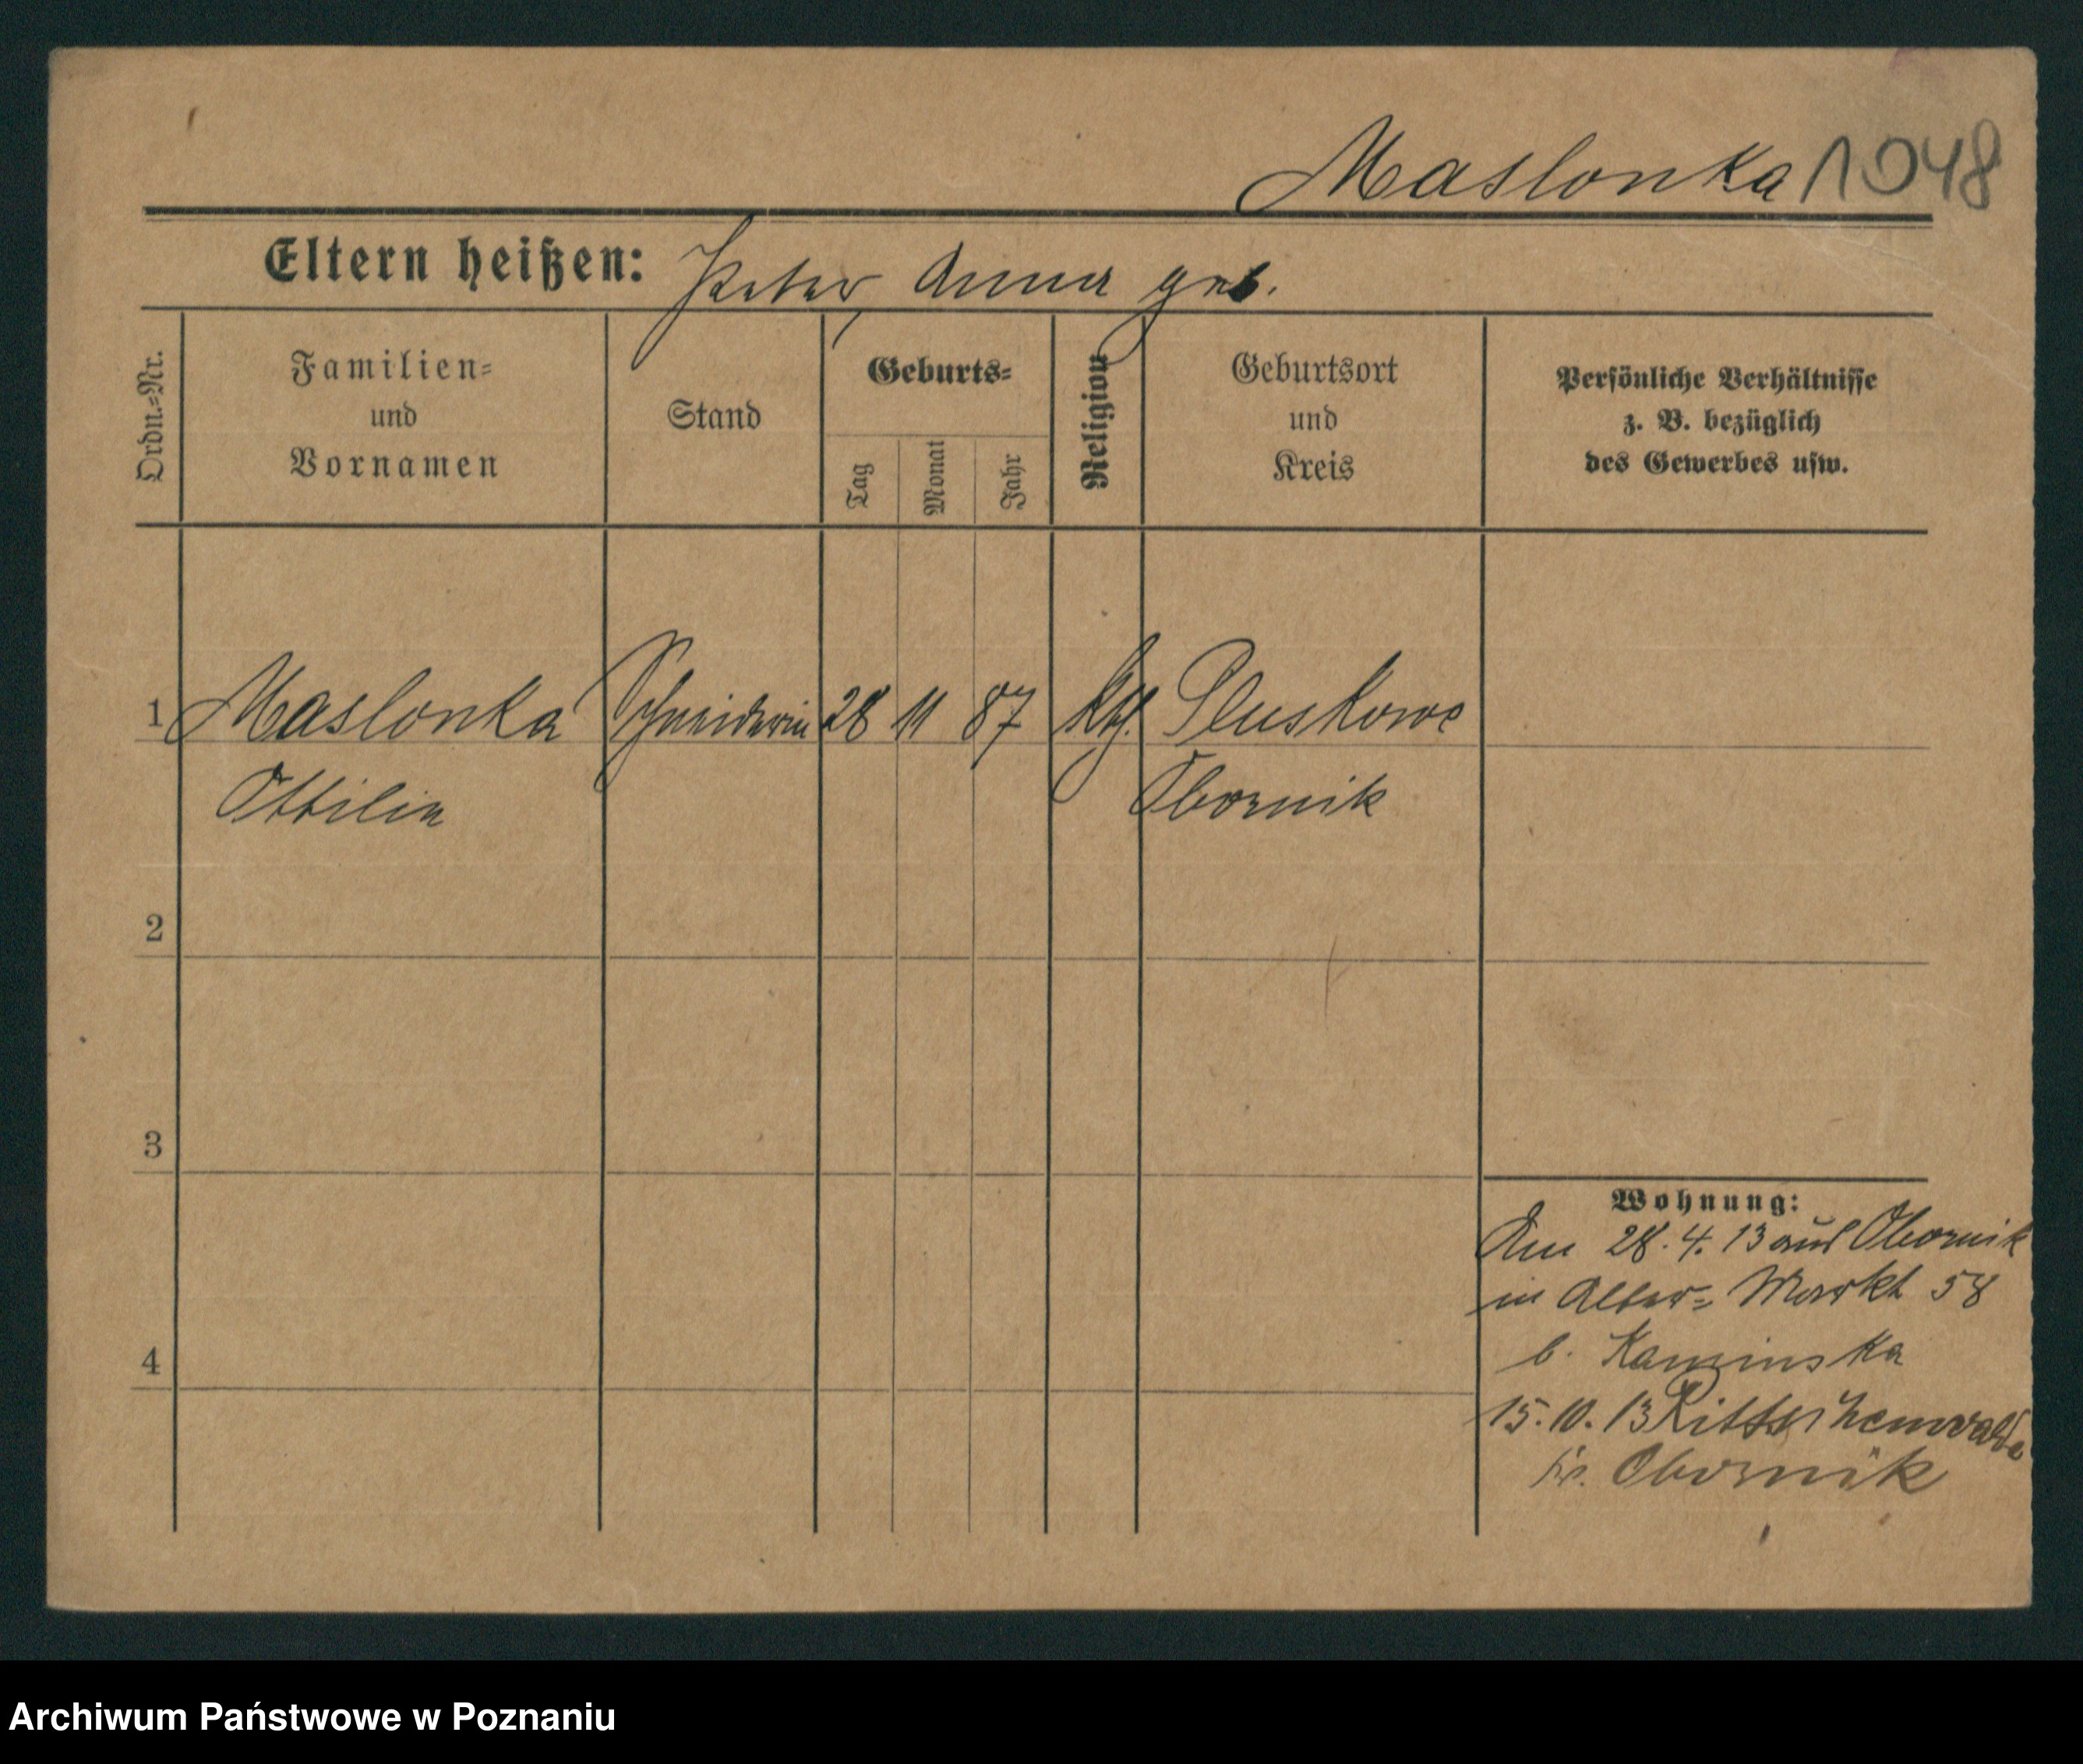 Maslonka 1048
Eltern heißen: Peter Anna geb.
Ordn.-Nr.
Familien-
und
Vornamen
Stand
Geburts-
Tag
Monat
Jahr
Religion
Geburtsort
und
Kreis
Persönliche Verhältnisse
z. B. bezüglich
des Gewerbes usw.
1 Maslonka Schneiderin 28 11 87 kth. Pluskowe
Ottilie Obornik
2
3
4
Wohnung:
Am 28.4.13 aus Obornik
in Alter- Markt 58
b. Kaminska
15.10.13 Ritschenwalde
Kr. Obornik
Archiwum Państwowe w Poznaniu